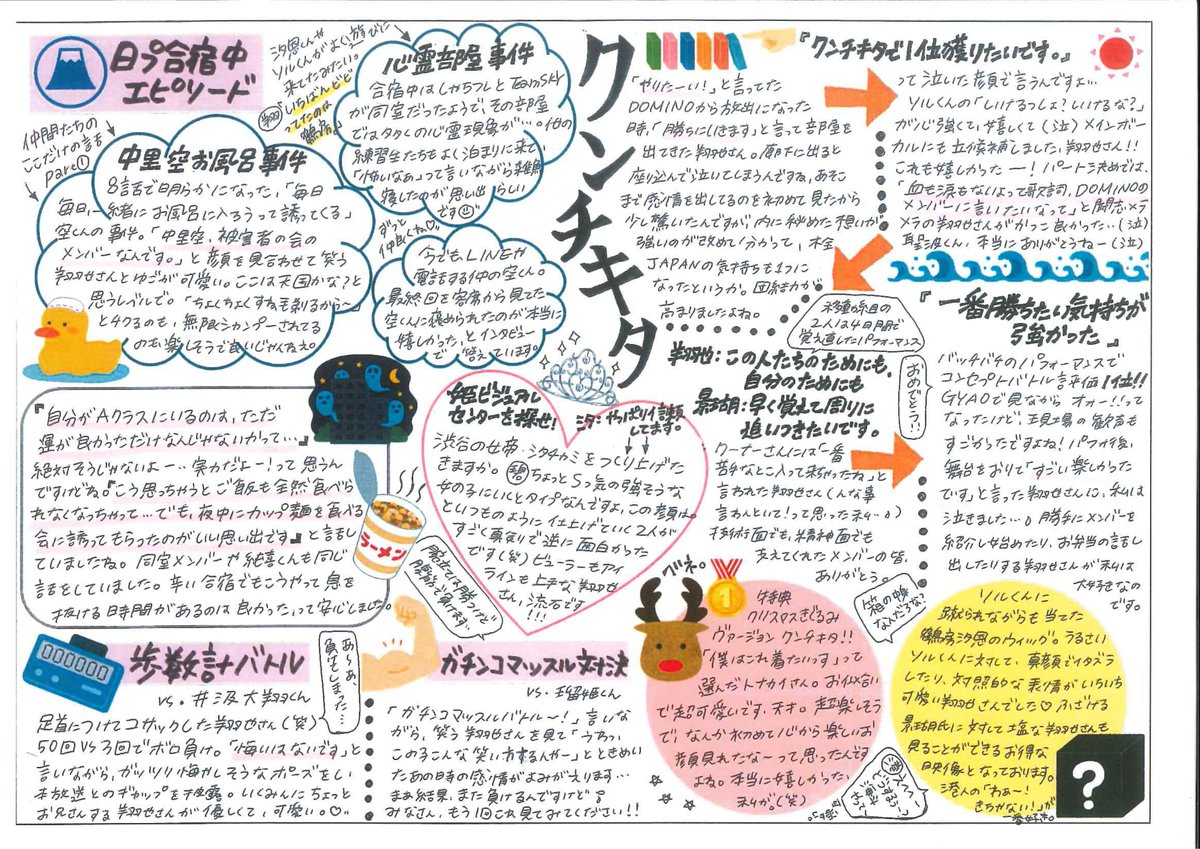 日プ合宿中
エピソード
仲間たちの
ここだけの話
part①
汐恩くんや
ソルくんがよく遊びに
来てたみたい。
いちばんビビ
ってたのは
鶴房
心霊部屋事件
合宿中はしゃちフレとTeamSKY
が同室だったようで、その部屋
ではタタくの心霊現象が…。他の
練習生たちもよく泊まりに来て、
「怖いなぁ」って言いながら雑魚
寝したのが思い出らしい
です
中里空お風呂事件
8話で明らかになった、「毎日
毎日、一緒にお風呂に入ろうって誘ってくる」
空くんの事件。「中里空、被害者の会の
メンバーなんです。」と顔を見合わせて笑う
翔也さんとゆごが可愛い。ここは天国かな？と
思うレベルで。「ちょくちょくすね毛剃るから〜」
とチクるのも、無限シャンプーされてる
のも楽しそうで良いじゃんねぇ。
ずっと
仲良くね♡
今でもLINEや
電話する仲の空くん。
最終回を客席から見てた
空くんに褒められたのが本当に
嬉しかった、とインタビュー
で答えています。
クンチキタ
『クンチキタで1位獲りたいです。』
「やりたーい！」と言ってた
DOMINOから放出になった
時、「勝ちにいきます」と言って部屋を
出てきた翔也さん。廊下に出ると
座り込んで泣いてしまうんですね、あそこ
まで感情を出してるのを初めて見たから
少し驚いたんですが、内に秘めた想いが
強いのが改めて分かって、木全
JAPANの気持ちも1つに
なったというか。団結力が
高まりましたよね。
って泣いた顔で言うんですよ…
ソルくんの「いけるっしょ？いけるな？」
が心強くて、嬉しくて(泣)メインボー
カルにも立候補しました、翔也さん!!
これも嬉しかったー！パート決めでは、
「血も涙もないよって歌詞、DOMINOの
メンバーに言いたいなって」と闘志メラ
メラの翔也さんがかっこ良かった…(泣)
真音波くん、本当にありがとうねー(泣)
『一番勝ちたい気持ちが
強かった』
2人は4日間で
覚え直したパフォーマンス
おめでとう!!
バッチバチのパフォーマンスで
コンセプトバトル評価1位!!
GYAOで見ながらオォー!!って
なったけど、現場の歓声も
すごかったですよね！パフォ後、
舞台をおりて「すごい楽しかった
です」と言った翔也さんに、私は
泣きました…。勝手にメンバーを
紹介し始めたり、お弁当の話し
出したりする翔也さんが私は
大好きなの
です。
翔也：この人たちのためにも、
自分のためにも
景瑚：早く覚えて周りに
追いつきたいです。
クーナーさんには「一番
苦手なとこ入って来ちゃったね」と
言われた翔也さん(んな事
言わんといて！って思った私…。)
技術面でも、精神面でも
支えてくれたメンバーの皆、
ありがとう。
『自分がAクラスにいるのは、ただ
運が良かっただけなんじゃないかって…』
絶対そうじゃないよー…実力だよー！って思うん
ですけどね。『こう思っちゃうとご飯も全然食べら
れなくなっちゃって…でも、夜中にカップ麺を食べる
会に誘ってもらったのがいい思い出です』と話し
ていましたね。同室メンバーや純喜くんも同じ
話をしていました。辛い合宿でもこうやって息を
抜ける時間があるのは良かった、って安心しました。
ラーメン
姫ビジュアル
センターを探せ！
汐：やっぱりイ頼
してます。
渋谷の女帝・シタチカミをつくり上げた
きますか。ちょっとSっ気の強そうな
女の子にいくとタイプなんですよ、この顔は。
といつものように仕上げていく2人が
すごく真剣で逆に面白かった
です(笑)ビューラーもアイ
ラインも上手な翔也
さん、流石です
!!!
歩数計バトル
vs. 井汲大翔くん
あ〜あ、
負けてしまった…
足首につけてコサックした翔也さん(笑)
50回VS3回でボロ負け。「悔いはないです」と
言いながら、ガッツリ悔やしそうなポーズをし
本放送とのギャップを披露。いくみんにちょっと
お兄さんする翔也さんが優しくて、可愛い。♡
腕立ては勝つけど
腹筋で負けます…
ガチンコマッスル対決
vs. 瑠姫くん
「ガチンコマッスルバトル〜！」言いな
がら、笑う翔也さんを見て「うわっ、
この子こんな笑い方するんやー」とときめい
たあの時の感情がよみがえります…
まぁ結果、また負けるんですけど
みなさん、もう1回これ見てみてください!!
グネ。
特典
クリスマスきぐるみ
ヴァージョン クンチキタ!!
「僕はこれ着たいっす」って
選んだトナカイさん。お似合い
で超可愛いです、天才。超楽しそう
で、なんか初めて心から楽しいお
顔見れたな〜って思ったんです
よね。本当に嬉しかった、
私が。(笑)
箱の中身
なんだろな？
ソルくんに
蹴られながらも当てた
鶴房汐恩のウィッグ。うるさい
ソルくんに対して、真顔でイタズラ
したり、対照的な表情がいちいち
可愛い翔也さんでした♡ふざける
景瑚氏に対して塩な翔也さんも
見ることができるお得な
映像となっております。
港人の「わぁ〜！
きちゃない！」が
一番好き。
?